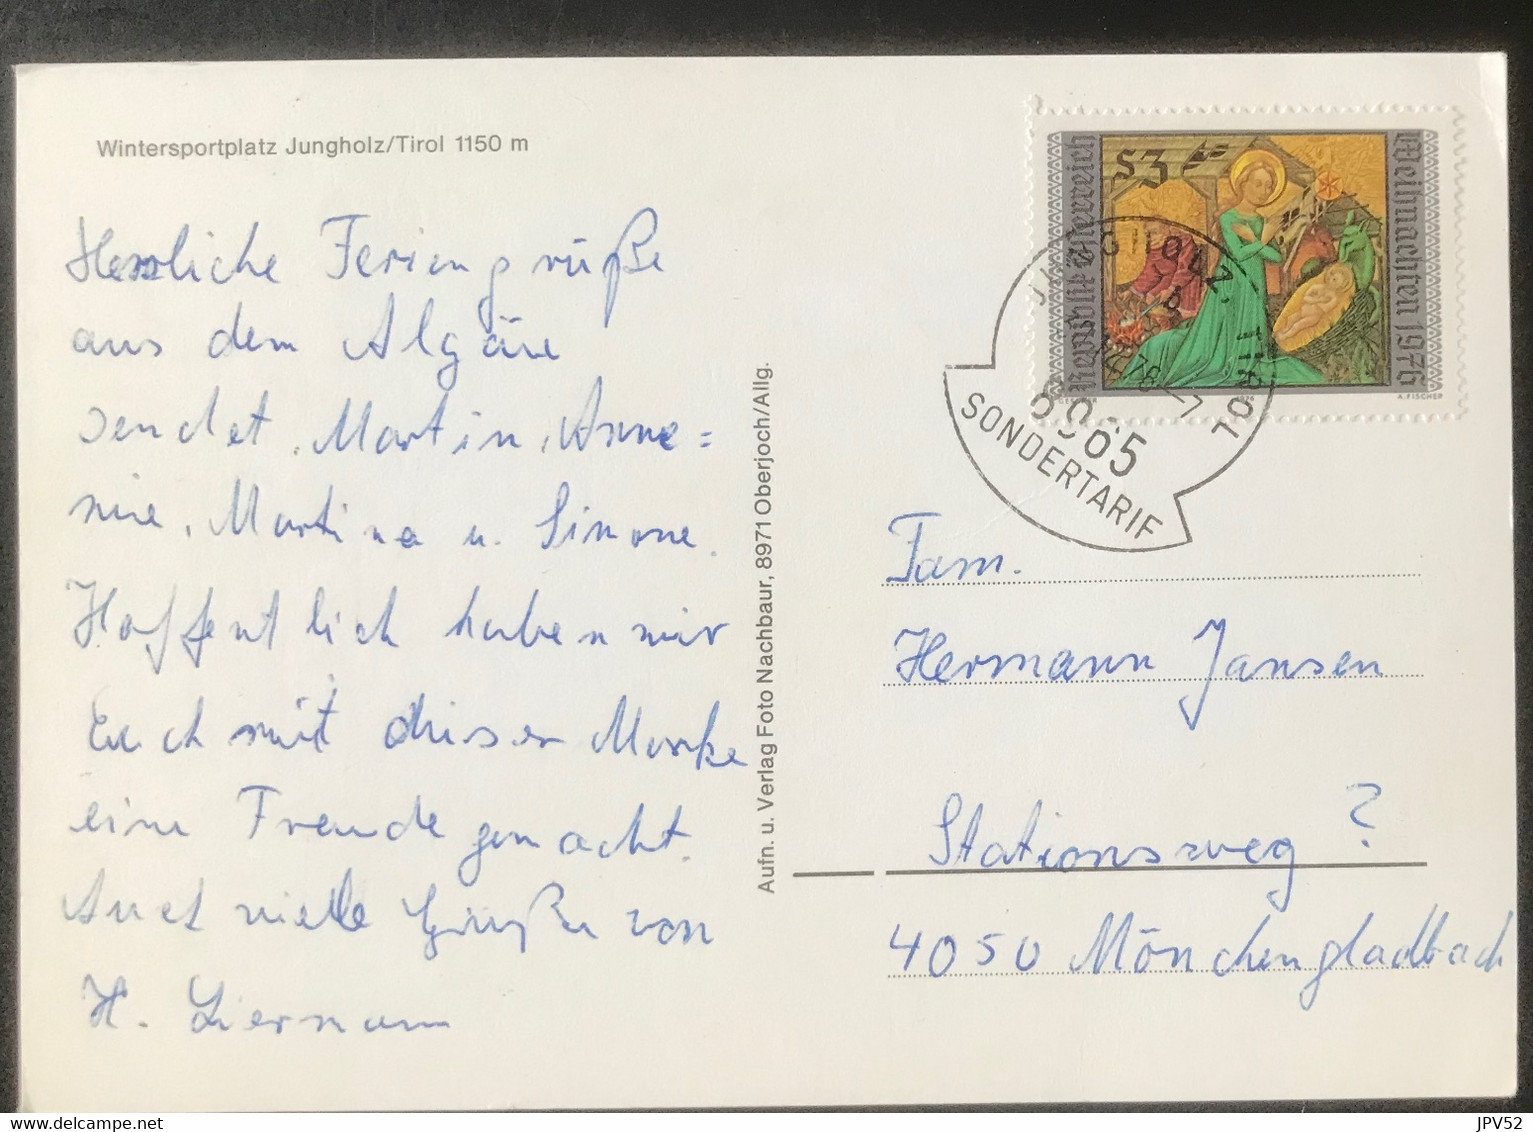 Wintersportplatz Jungholz/Tirol 1150 m
Herzliche Feriengrüße
aus dem Algäu
sendet Martin, Anne=
mie, Martina u. Simone.
Hoffentlich haben wir
Euch mit dieser Marke
eine Freude gemacht.
Auch viele Grüße von
H. Liermann
Aufn. u. Verlag Foto Nachbaur, 8971 Oberjoch/Allg.
S3
Republik Österreich
Weihnachten 1976
A. FISCHER
JUNGHOLZ, TIROL
6965
SONDERTARIF
Fam.
Hermann Jansen
Stationsweg ?
4050 Mönchengladbach
delcampe.net
JPV52